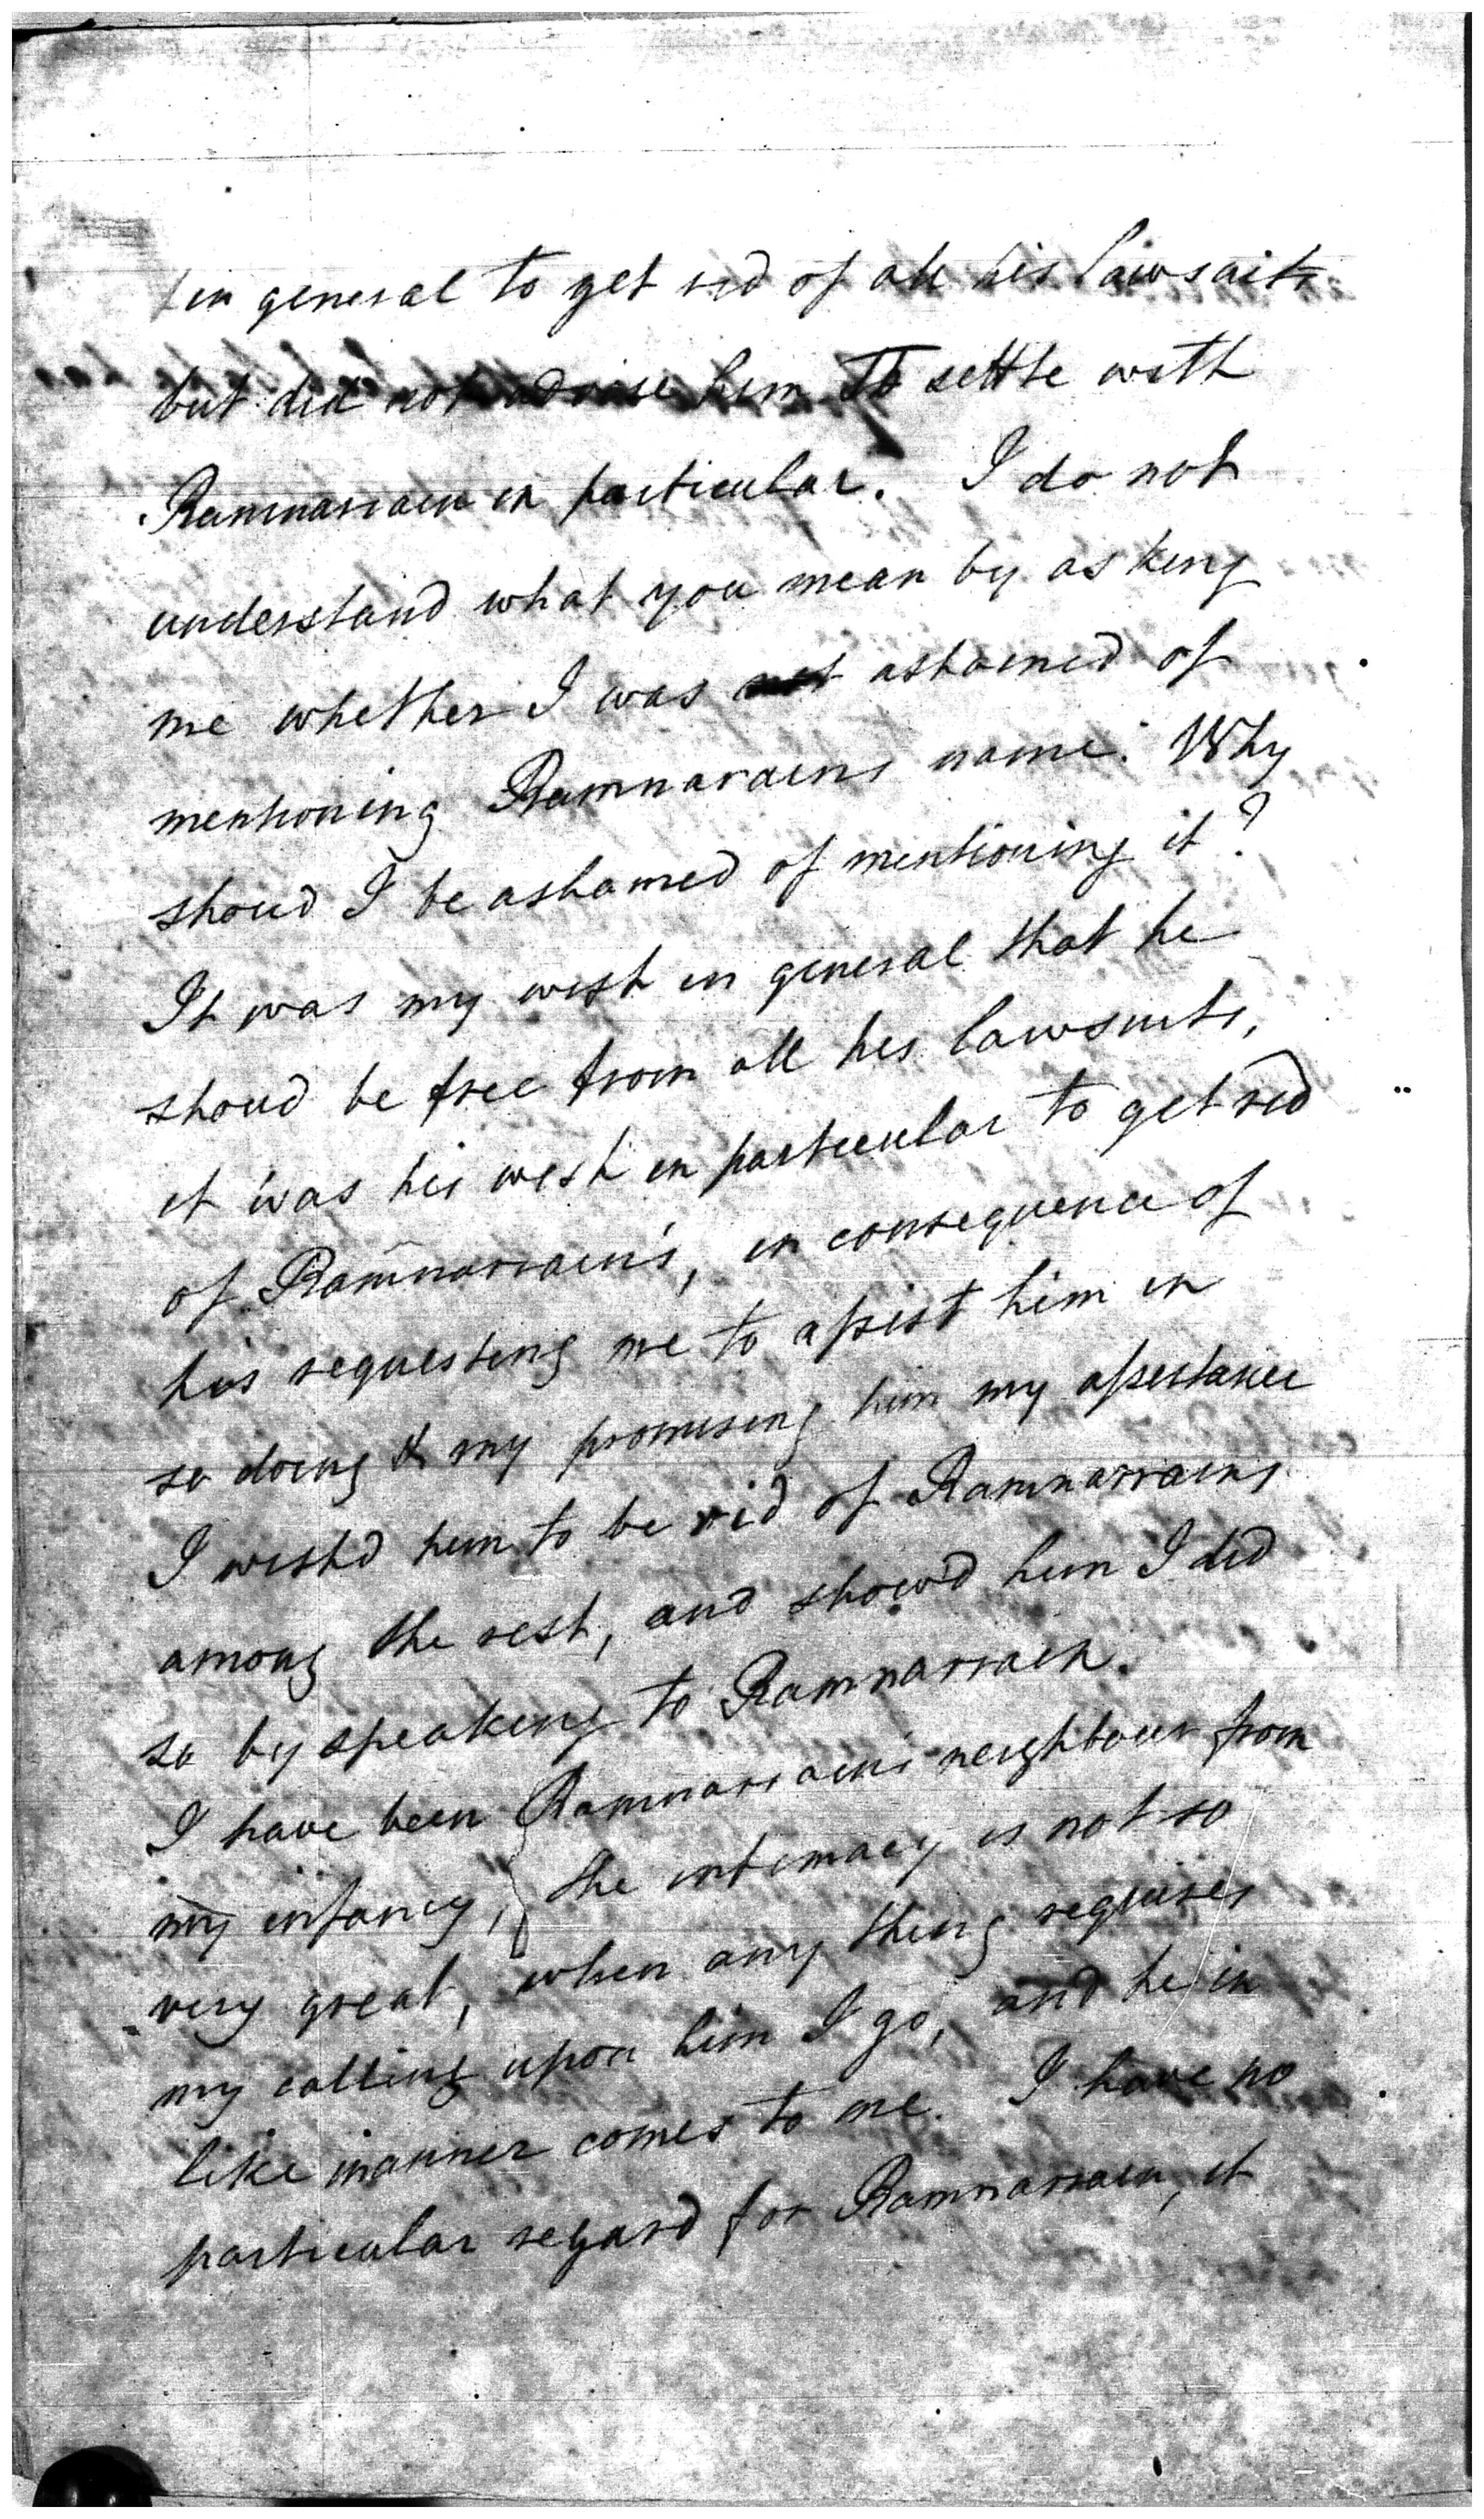 in general to get rid of all his lawsuits
but did not advise him to settle with
Ramnarrain in particular. I do not
understand what you mean by asking
me whether I was ashamed of
mentioning Ramnarains name. Why
shoud I be ashamed of mentioning it?
It was my wish in general that he
shoud be free from all his lawsuits,
it was his wish in particular to get rid
of Ramnarrain's, in consequence of
his requesting me to assist him in
so doing & my promising him my assistance
I wish'd him to be rid of Ramnarrains
among the rest, and show'd him I did
so by speaking to Ramnarrain.
I have been Ramnarrain's neighbour from
my infancy, the intimacy is not so
very great, when any thing requires
my calling upon him I go, and he in
like manner comes to me. I have no
particular regard for Ramnarrain, it